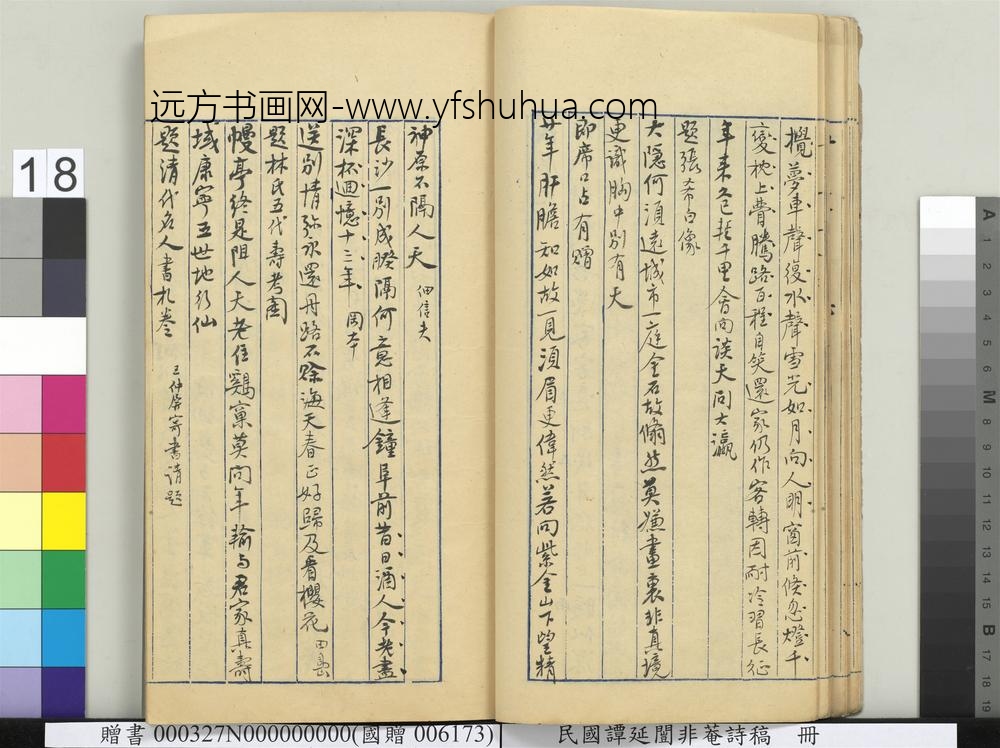 远方书画网-www.yfshuhua.com
攪夢車聲復水聲雪光如月向人明窗前倏忽燈千
變枕上瞢騰路百程自笑還家仍作客轉因耐冷習長征
年來鬼趣千里會向談天同大瀛
題張希白像
大隱何須遠城市一庭金石故翛然莫嫌畫裏非真境
更識胸中別有天
即席口占有贈
廿年肝膽知如故一見須眉更偉然若向紫金山下望精
神原不隔人天 佃信夫
長沙一別成睽隔何意相逢鐘阜前昔日酒人今老盡
深杯迴憶十三年 岡本
送別情弥永還丹路不賒海天春正好歸及看櫻花 田島
題林氏五代壽考圖
幔亭終是阻人天老住鷄窠莫問年輸與君家真壽
域康寧五世地行仙
題清代名人書札卷 王仲屏寄書請題
18
A 1 2 3 4 5 6 M 8 9 10 11 12 13 14 15 B 17 18 19
贈書 000327N000000000(國贈 006173)
民國譚延闓非菴詩稿 冊